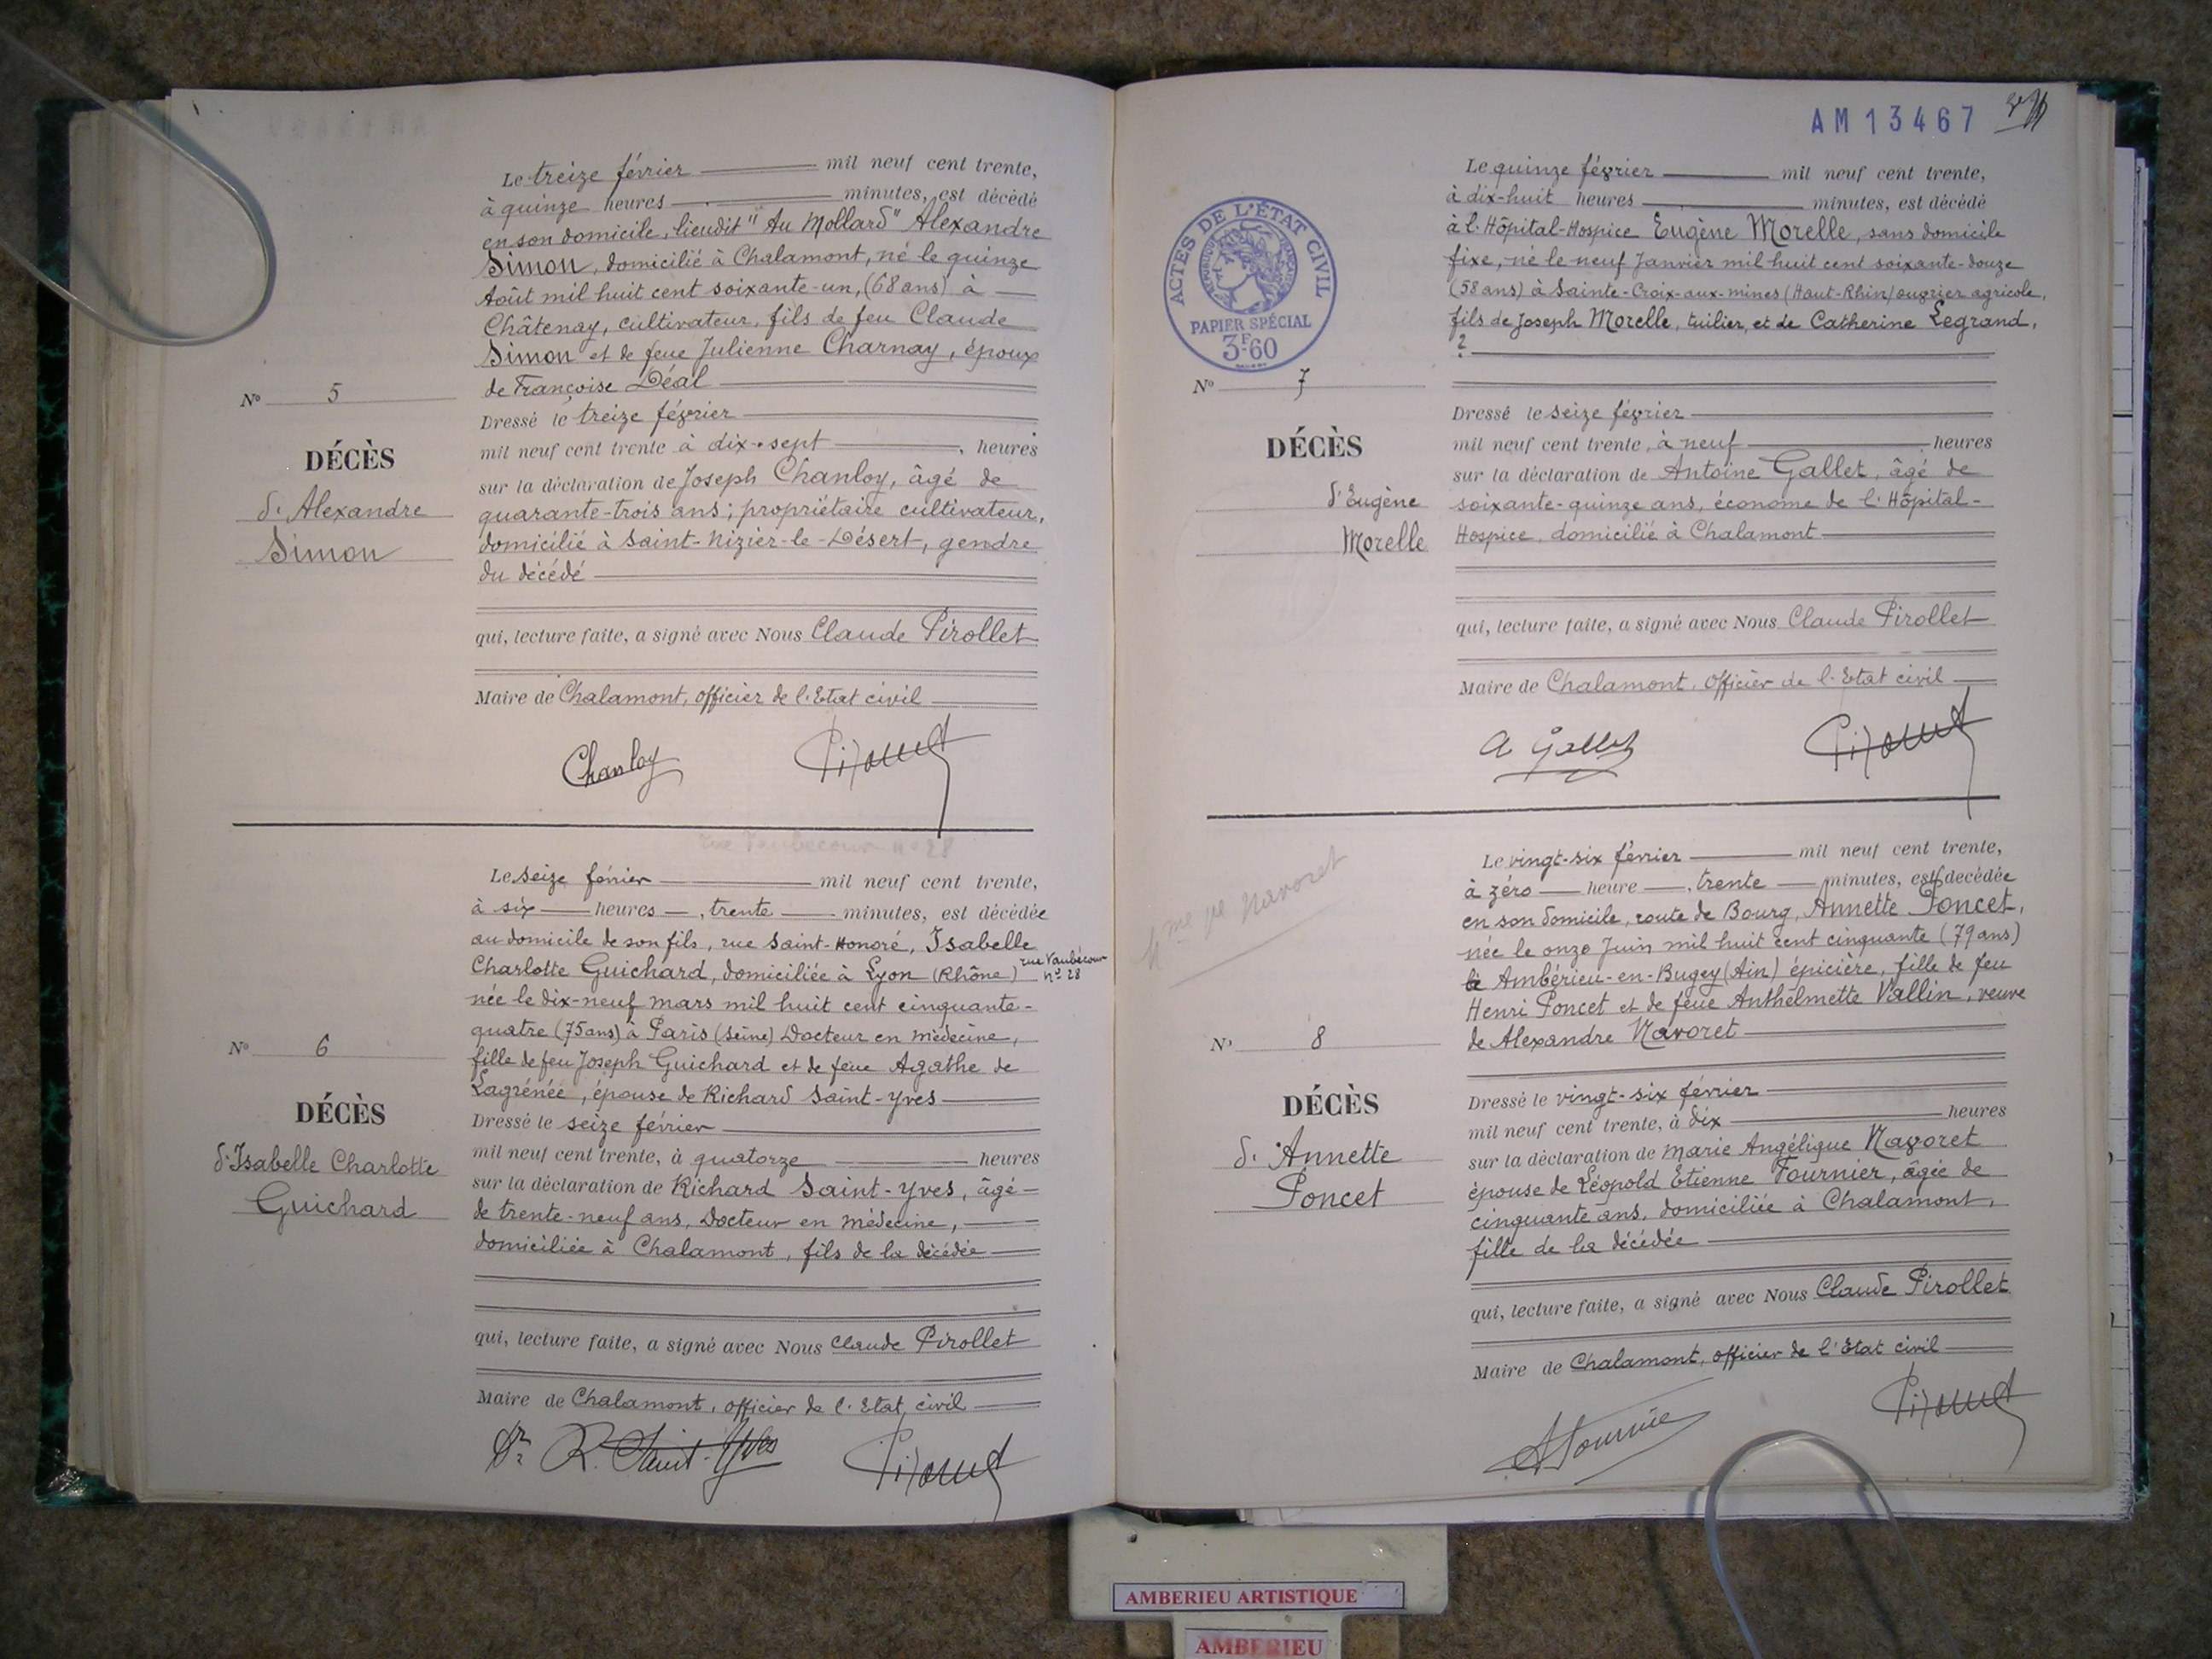 Le treize février mil neuf cent trente,
à quinze heures minutes, est décédé
en son domicile, lieudit "Au Mollard" Alexandre
Simon, domicilié à Chalamont, né le quinze
Août mil huit cent soixante-un, (68 ans) à
Châtenay, cultivateur, fils de feu Claude
Simon et de feue Julienne Charnay, époux
de Françoise Déal
Nº 5
DÉCÈS
d'Alexandre
Simon
Dressé le treize février
mil neuf cent trente à dix-sept, heures
sur la déclaration de Joseph Chanloy, âgé de
quarante-trois ans; propriétaire cultivateur,
domicilié à Saint-Nizier-le-Désert, gendre
du décédé
qui, lecture faite, a signé avec Nous Claude Pirollet
Maire de Chalamont, officier de l'Etat civil
Chanloy
Le seize février mil neuf cent trente,
à six heures, trente minutes, est décédée
au domicile de son fils, rue Saint-Honoré, Isabelle
Charlotte Guichard, domiciliée à Lyon (Rhône) rue Vaubécour
nº 28
née le dix-neuf mars mil huit cent cinquante-
quatre (75 ans) à Paris (Seine) Docteur en médecine,
fille de feu Joseph Guichard et de feue Agathe de
Lagrénée, épouse de Richard Saint-Yves
Nº 6
DÉCÈS
d'Isabelle Charlotte
Guichard
Dressé le seize février
mil neuf cent trente, à quatorze heures
sur la déclaration de Richard Saint-Yves, âgé
de trente-neuf ans, Docteur en médecine,
domiciliée à Chalamont, fils de la décédée
qui, lecture faite, a signé avec Nous Claude Pirollet
Maire de Chalamont, officier de l'Etat civil
Dr R. Saint-Yves
AM13467
ACTES DE L'ÉTAT CIVIL
PAPIER SPÉCIAL
3F60
Le quinze février mil neuf cent trente,
à dix-huit heures minutes, est décédé
à l'Hôpital-Hospice Eugène Morelle, sans domicile
fixe, né le neuf Janvier mil huit cent soixante-douze
(58 ans) à Sainte-Croix-aux-mines (Haut-Rhin) ouvrier agricole,
fils de Joseph Morelle, tuilier, et de Catherine Legrand,
?
Nº 7
DÉCÈS
d'Eugène
Morelle
Dressé le seize février
mil neuf cent trente, à neuf heures
sur la déclaration de Antoine Gallet, âgé de
soixante-quinze ans, économe de l'Hôpital-
Hospice, domicilié à Chalamont
qui, lecture faite, a signé avec Nous Claude Pirollet
Maire de Chalamont, Officier de l'Etat civil
A Gallet
Mme Vve Navoret
Le vingt-six février mil neuf cent trente,
à zéro heure, trente minutes, est decédée
en son domicile, route de Bourg, Annette Poncet,
née le onze Juin mil huit cent cinquante (79 ans)
à Ambérieu-en-Bugey (Ain) épicière, fille de feu
Henri Poncet et de feue Anthelmette Vallin, veuve
de Alexandre Navoret
Nº 8
DÉCÈS
d'Annette
Poncet
Dressé le vingt-six février
mil neuf cent trente, à dix heures
sur la déclaration de Marie Angélique Navoret
épouse de Léopold Etienne Fournier, âgée de
cinquante ans, domiciliée à Chalamont,
fille de la décédée
qui, lecture faite, a signé avec Nous Claude Pirollet
Maire de Chalamont, officier de l'Etat civil
AMBERIEU ARTISTIQUE
AMBERIEU